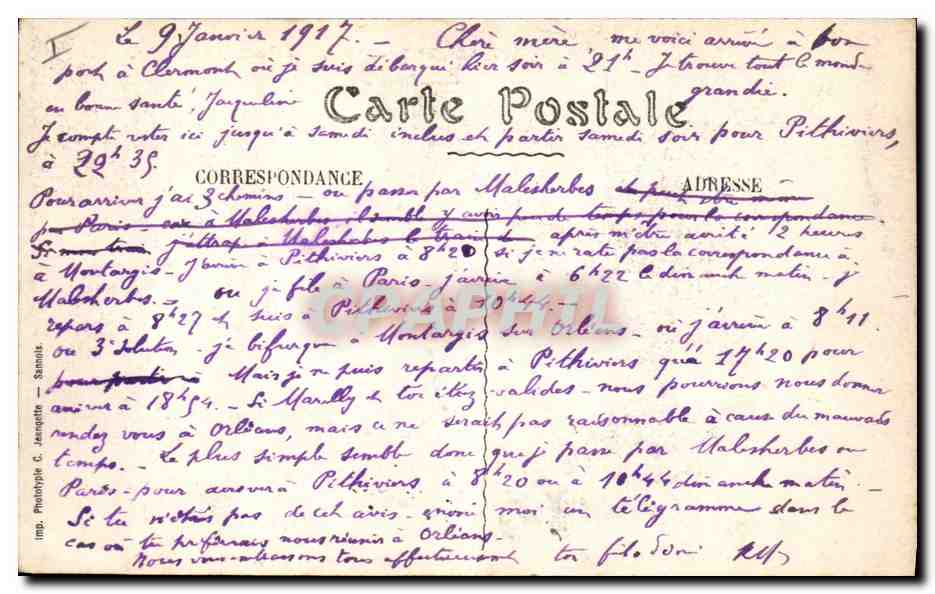 I
Le 9 Janvier 1917. - Chère mère, me voici arrivé à bon
port à Clermont où je suis débarqué hier soir à 21h - Je trouve tout le monde
en bonne santé, Jacqueline grandie.
Carte Postale
Je compte rester ici jusqu'à samedi inclus et partir samedi soir pour Pithiviers,
à 22h 35
CORRESPONDANCE
ADRESSE
Pour arriver j'ai 3 chemins - ou passer par Malesherbes
par Paris - car à Malesherbes il semble y avoir peu de temps pour la correspondance
j'attrape à Malesherbes le train de après m'être arrêté 2 heures
à Montargis - J'arrive à Pithiviers à 8h20 si je ne rate pas la correspondance à
Malesherbes - ou je file à Paris - j'arrive à 6h22 le dimanche matin - j
repars à 8h27 et suis à Pithiviers à 10h44 -
ou 3e solution - je bifurque à Montargis sur Orléans - où j'arrive à 8h11.
Mais je ne puis repartir à Pithiviers qu'à 17h20 pour
arriver à 18h54. - Si Marilly et toi étiez valides - nous pourrions nous donner
rendez vous à Orléans, mais ce ne serait pas raisonnable à cause du mauvais
temps. - Le plus simple semble donc que je passe par Malesherbes ou
Paris - pour arriver à Pithiviers à 8h20 ou à 10h44 dimanche matin -
Si tu n'étais pas de cet avis - envoie moi un télégramme dans le
cas où tu préférerais nous réunir à Orléans -
Nous vous embrassons tous affectueusement ton fils
Imp. Phototypie C. Jeangette - Sannois.
CPAPHIL